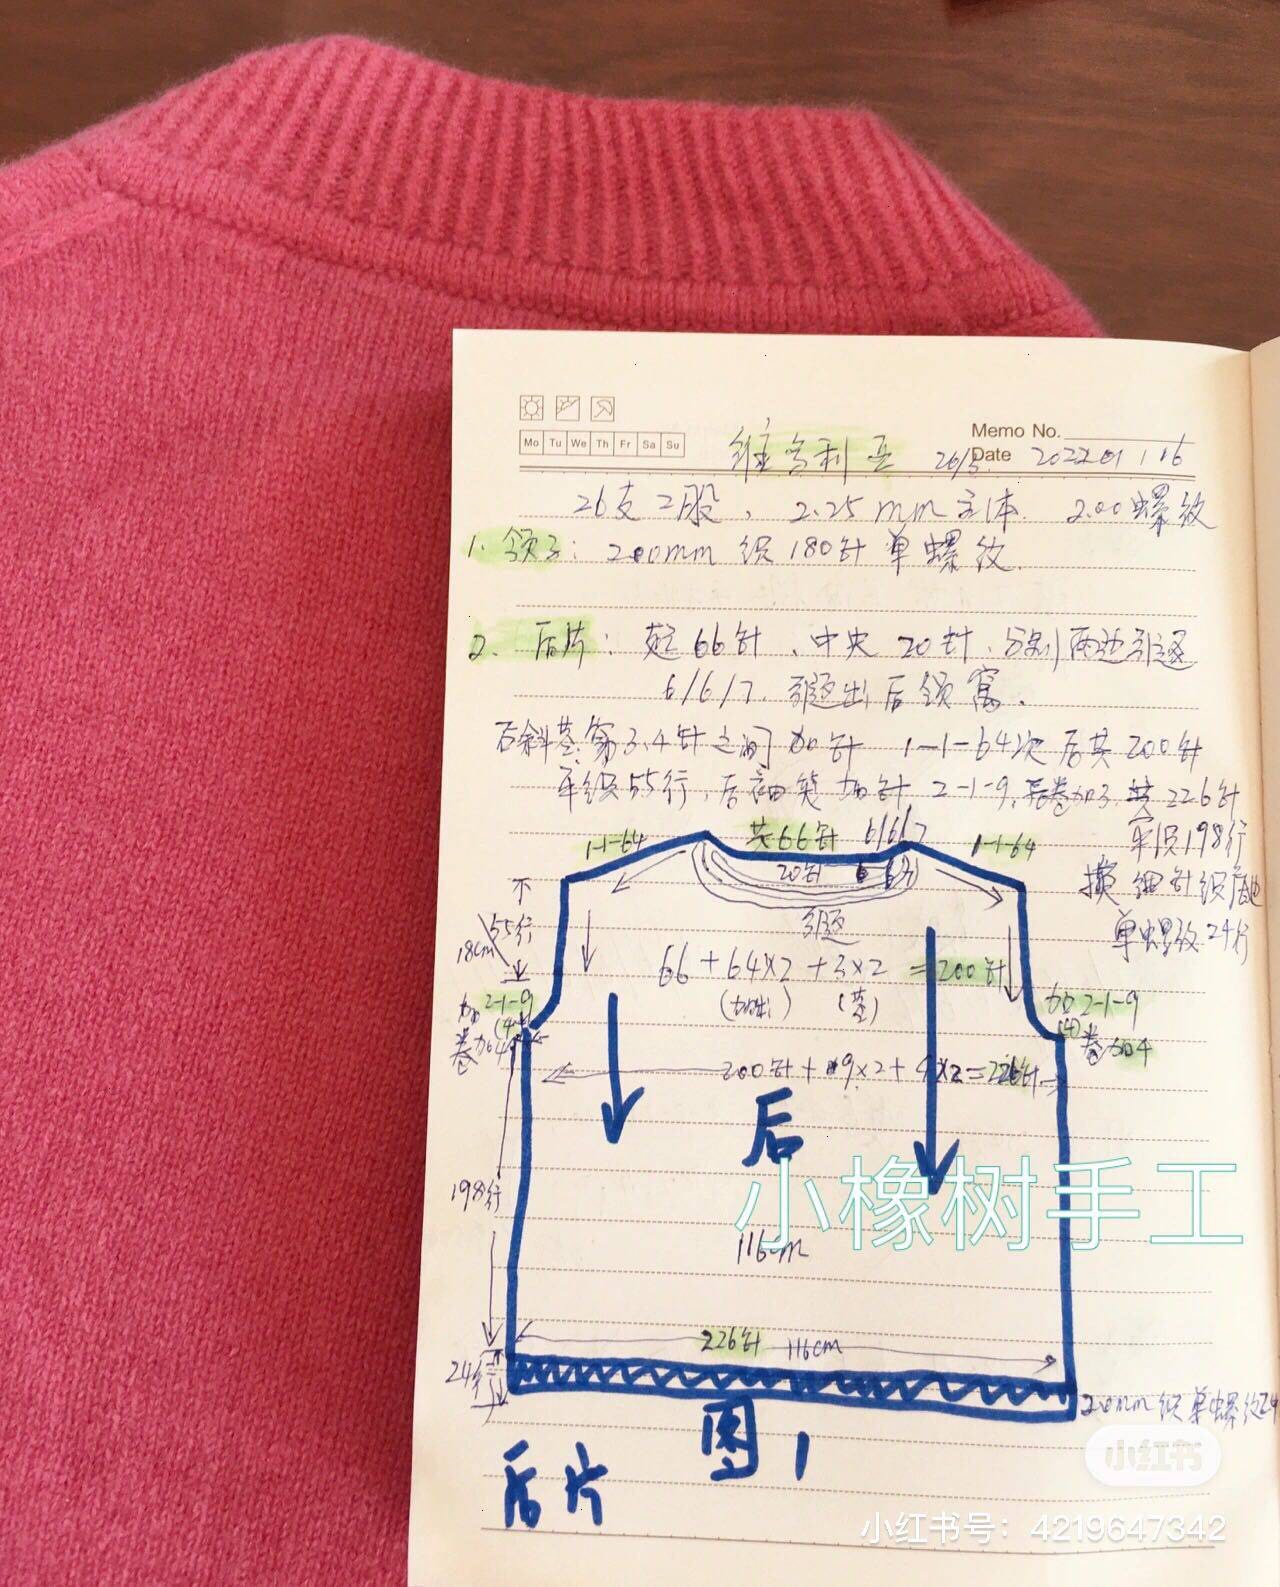 Mo Tu We Th Fr Sa Su
Memo No.
维多利亚 26/2 Date 2022.01.16
26支二股，2.25mm主体. 2.00螺纹
1. 领子：2.00mm 织180针单螺纹.
2. 后片：起66针、中央20针、分别两边引退
6/6/7. 引退出后领窝.
后斜茎第3.4针之间加针 1-1-64次后共200针
平织55行，后袖笼加针 2-1-9, 卷加 共226针
平织198行
换细针织底边
单螺纹24行
共66针 6/6/7
1-1-64
1-1-64
20针
引退
不
55行
18cm
66+64×2+3×2=200针
(加出) (茎)
加2-1-9
(4)
卷加4
加2-1-9
(4)
卷加4
200针+9×2+4×2=226针
后
小橡树手工
198行
116cm
226针 116cm
24行
2.0mm织单螺纹24
图1
后片
小红书
小红书号：4219647342